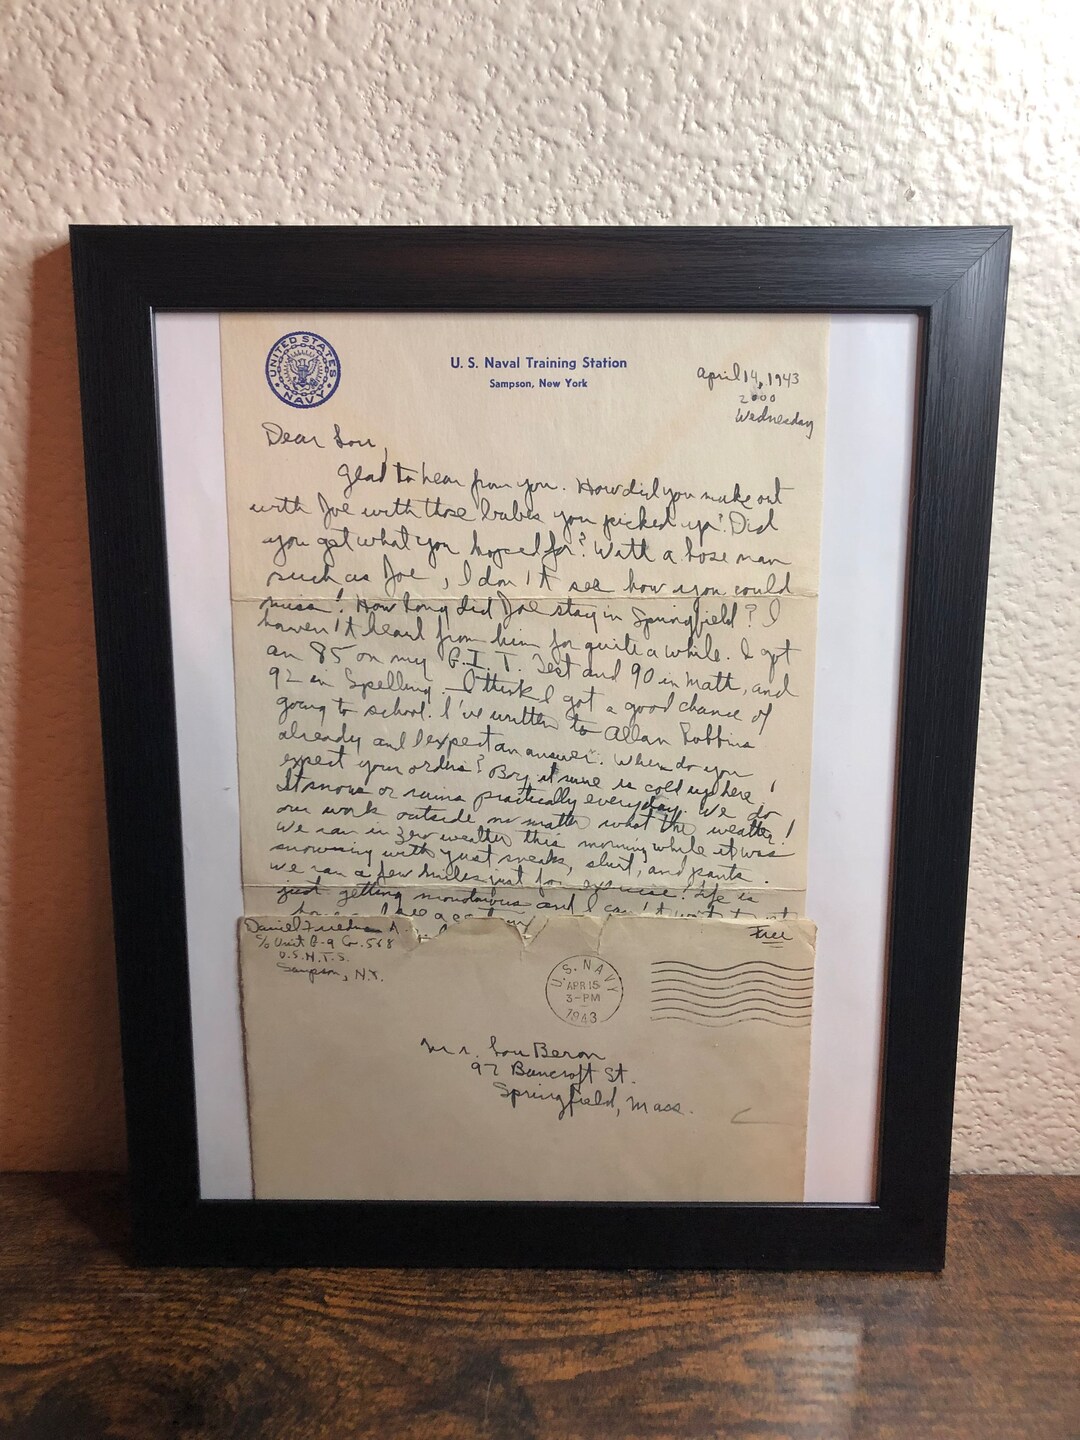 UNITED STATES NAVY
U. S. Naval Training Station
Sampson, New York
April 14, 1943
2000
Wednesday
Dear Lou,
Glad to hear from you. How did you make out
with Joe with those babes you picked up? Did
you get what you hoped for? With a hose man
such as Joe, I don't see how you could
miss! How long did Joe stay in Springfield? I
haven't heard from him for quite a while. I got
an 85 on my G.I.T. Test and 90 in Math, and
92 in Spelling. I think I got a good chance of
going to school. I've written to Allan Robbins
already and I expect an answer. When do you
expect your orders? Boy it sure is cold up here!
It snows or rains practically everyday. We do
our work outside no matter what the weather!
We ran in zero weather this morning while it was
snowing with just sneaks, shirt, and pants.
We ran a few miles just for exercise! Life is
just getting monotonous and I can't wait to
Daniel Friedman A.
c/o Unit G-9 Co. 568
U.S.N.T.S.
Sampson, N.Y.
Free
U.S. NAVY
APR 15
3-PM
1943
Mr. Lou Beron
97 Bancroft St.
Springfield, Mass.